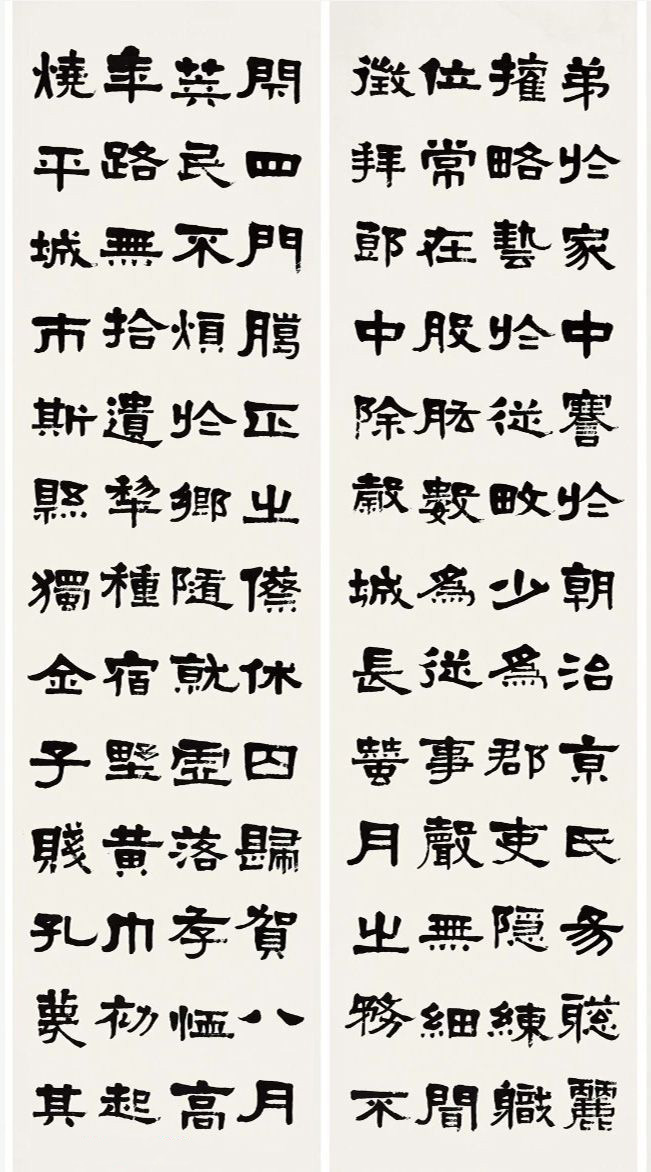 弟於家中謇於朝治京氏易聰麗
權略藝於從畋少為郡吏隱練職
位常在股肱數為從事聲無細聞
徵拜郎中除穀城長蠶月之務不
閉四門臘正之傺休囚歸賀八月
筭民不煩於鄉隨就虛落存恤高
年路無拾遺犁種宿野黃巾初起
燒平城市斯縣獨全子賤孔蔑其